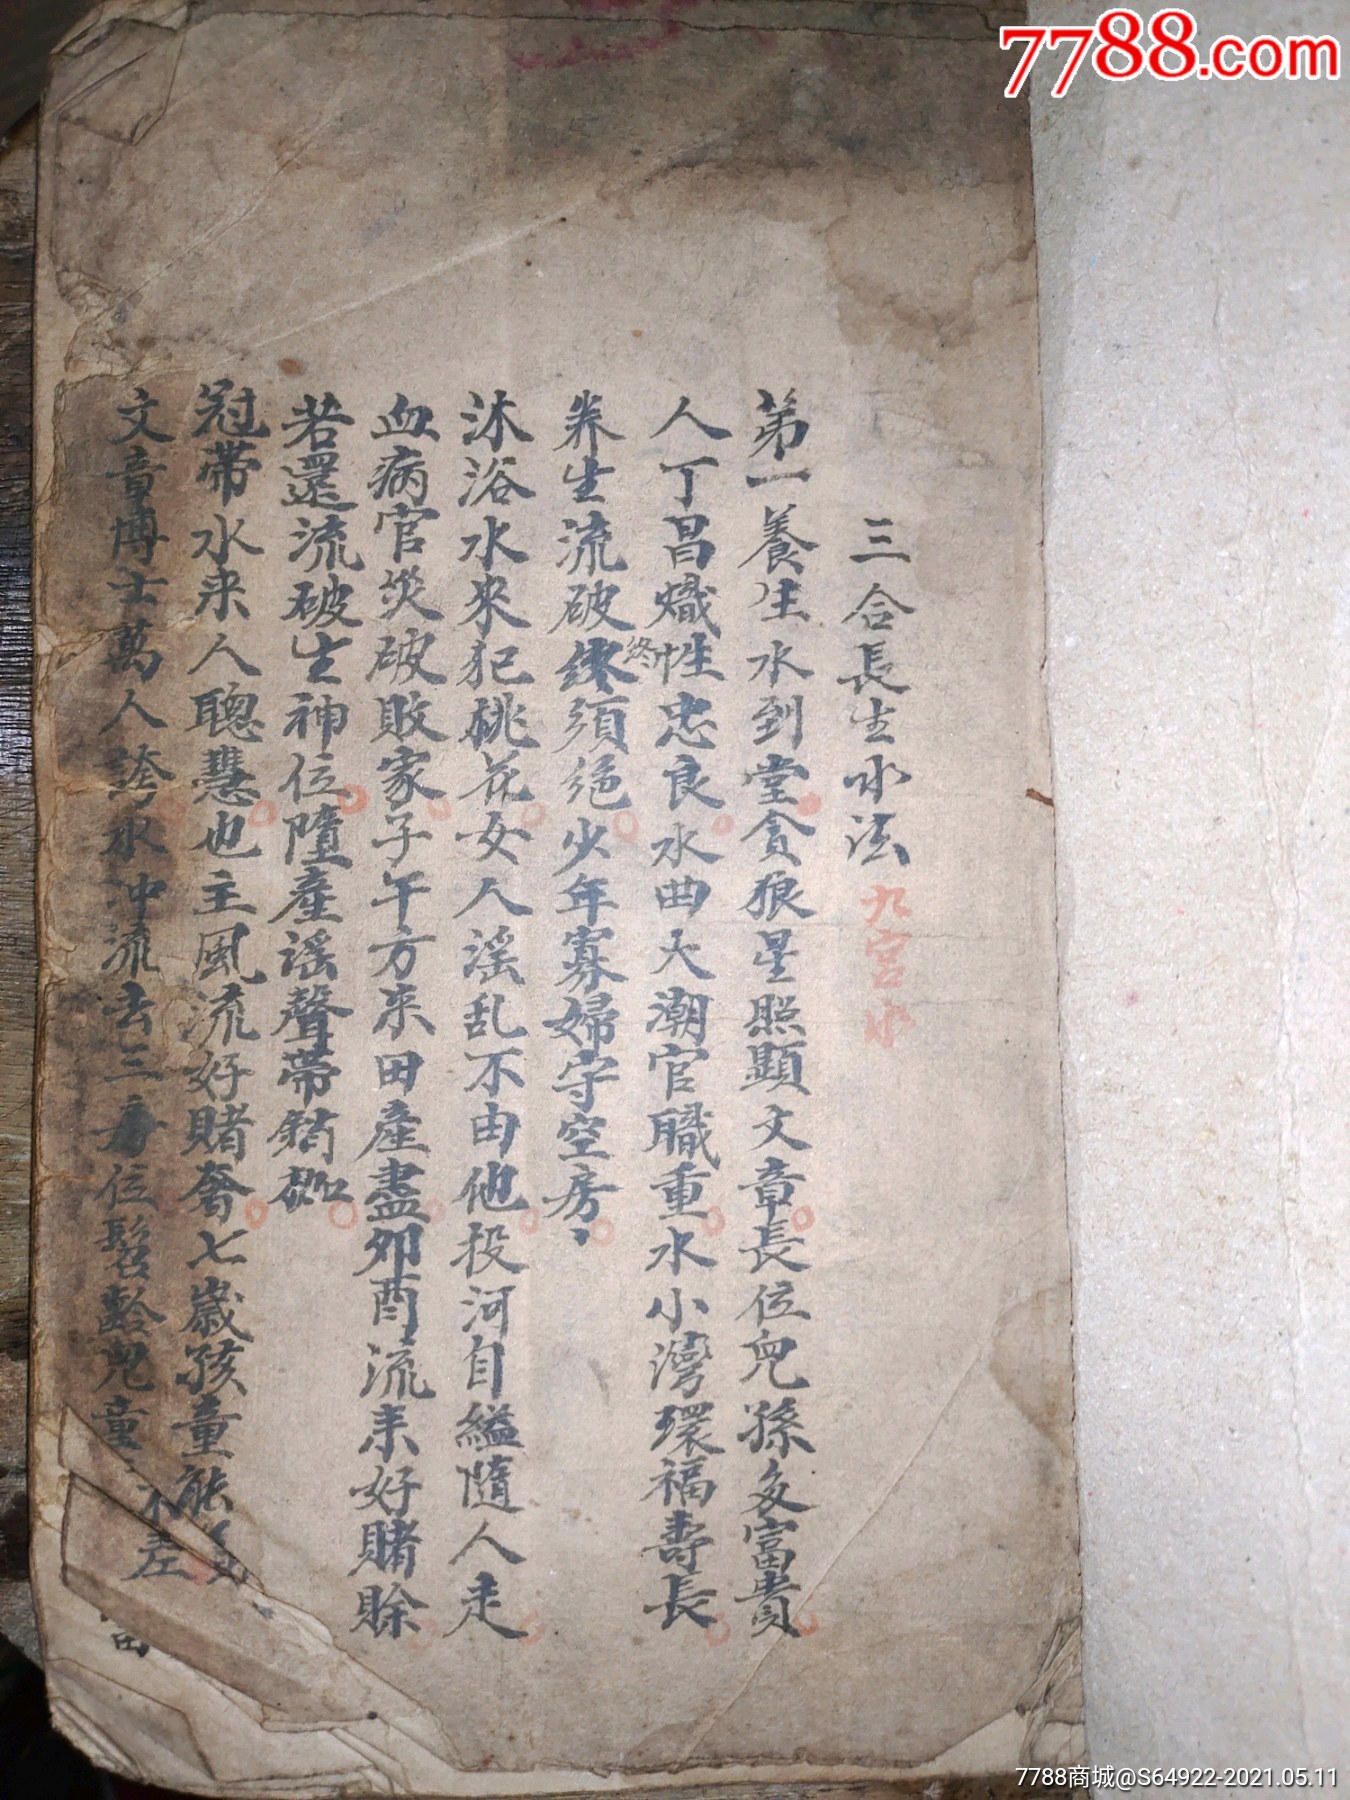 7788.com
三合長生水法 九宮水
第一養生水到堂貪狼星照顯文章長位兒孫多富貴
人丁昌熾性忠良水曲大潮官職重水小灣環福壽長
养生流破終須绝少年寡婦守空房
終
沐浴水来犯桃花女人滛乱不由他投河自縊隨人走
血病官災破敗家子午方来田產盡夘酉流来好賭賖
若還流破生神位墮產滛聲帶
冠帶水来人聰慧也主風流好賭奢七歲孩童能
文章博士萬人誇水冲流去三房位髫齡兒童 不差
7788商城@S64922-2021.05.11